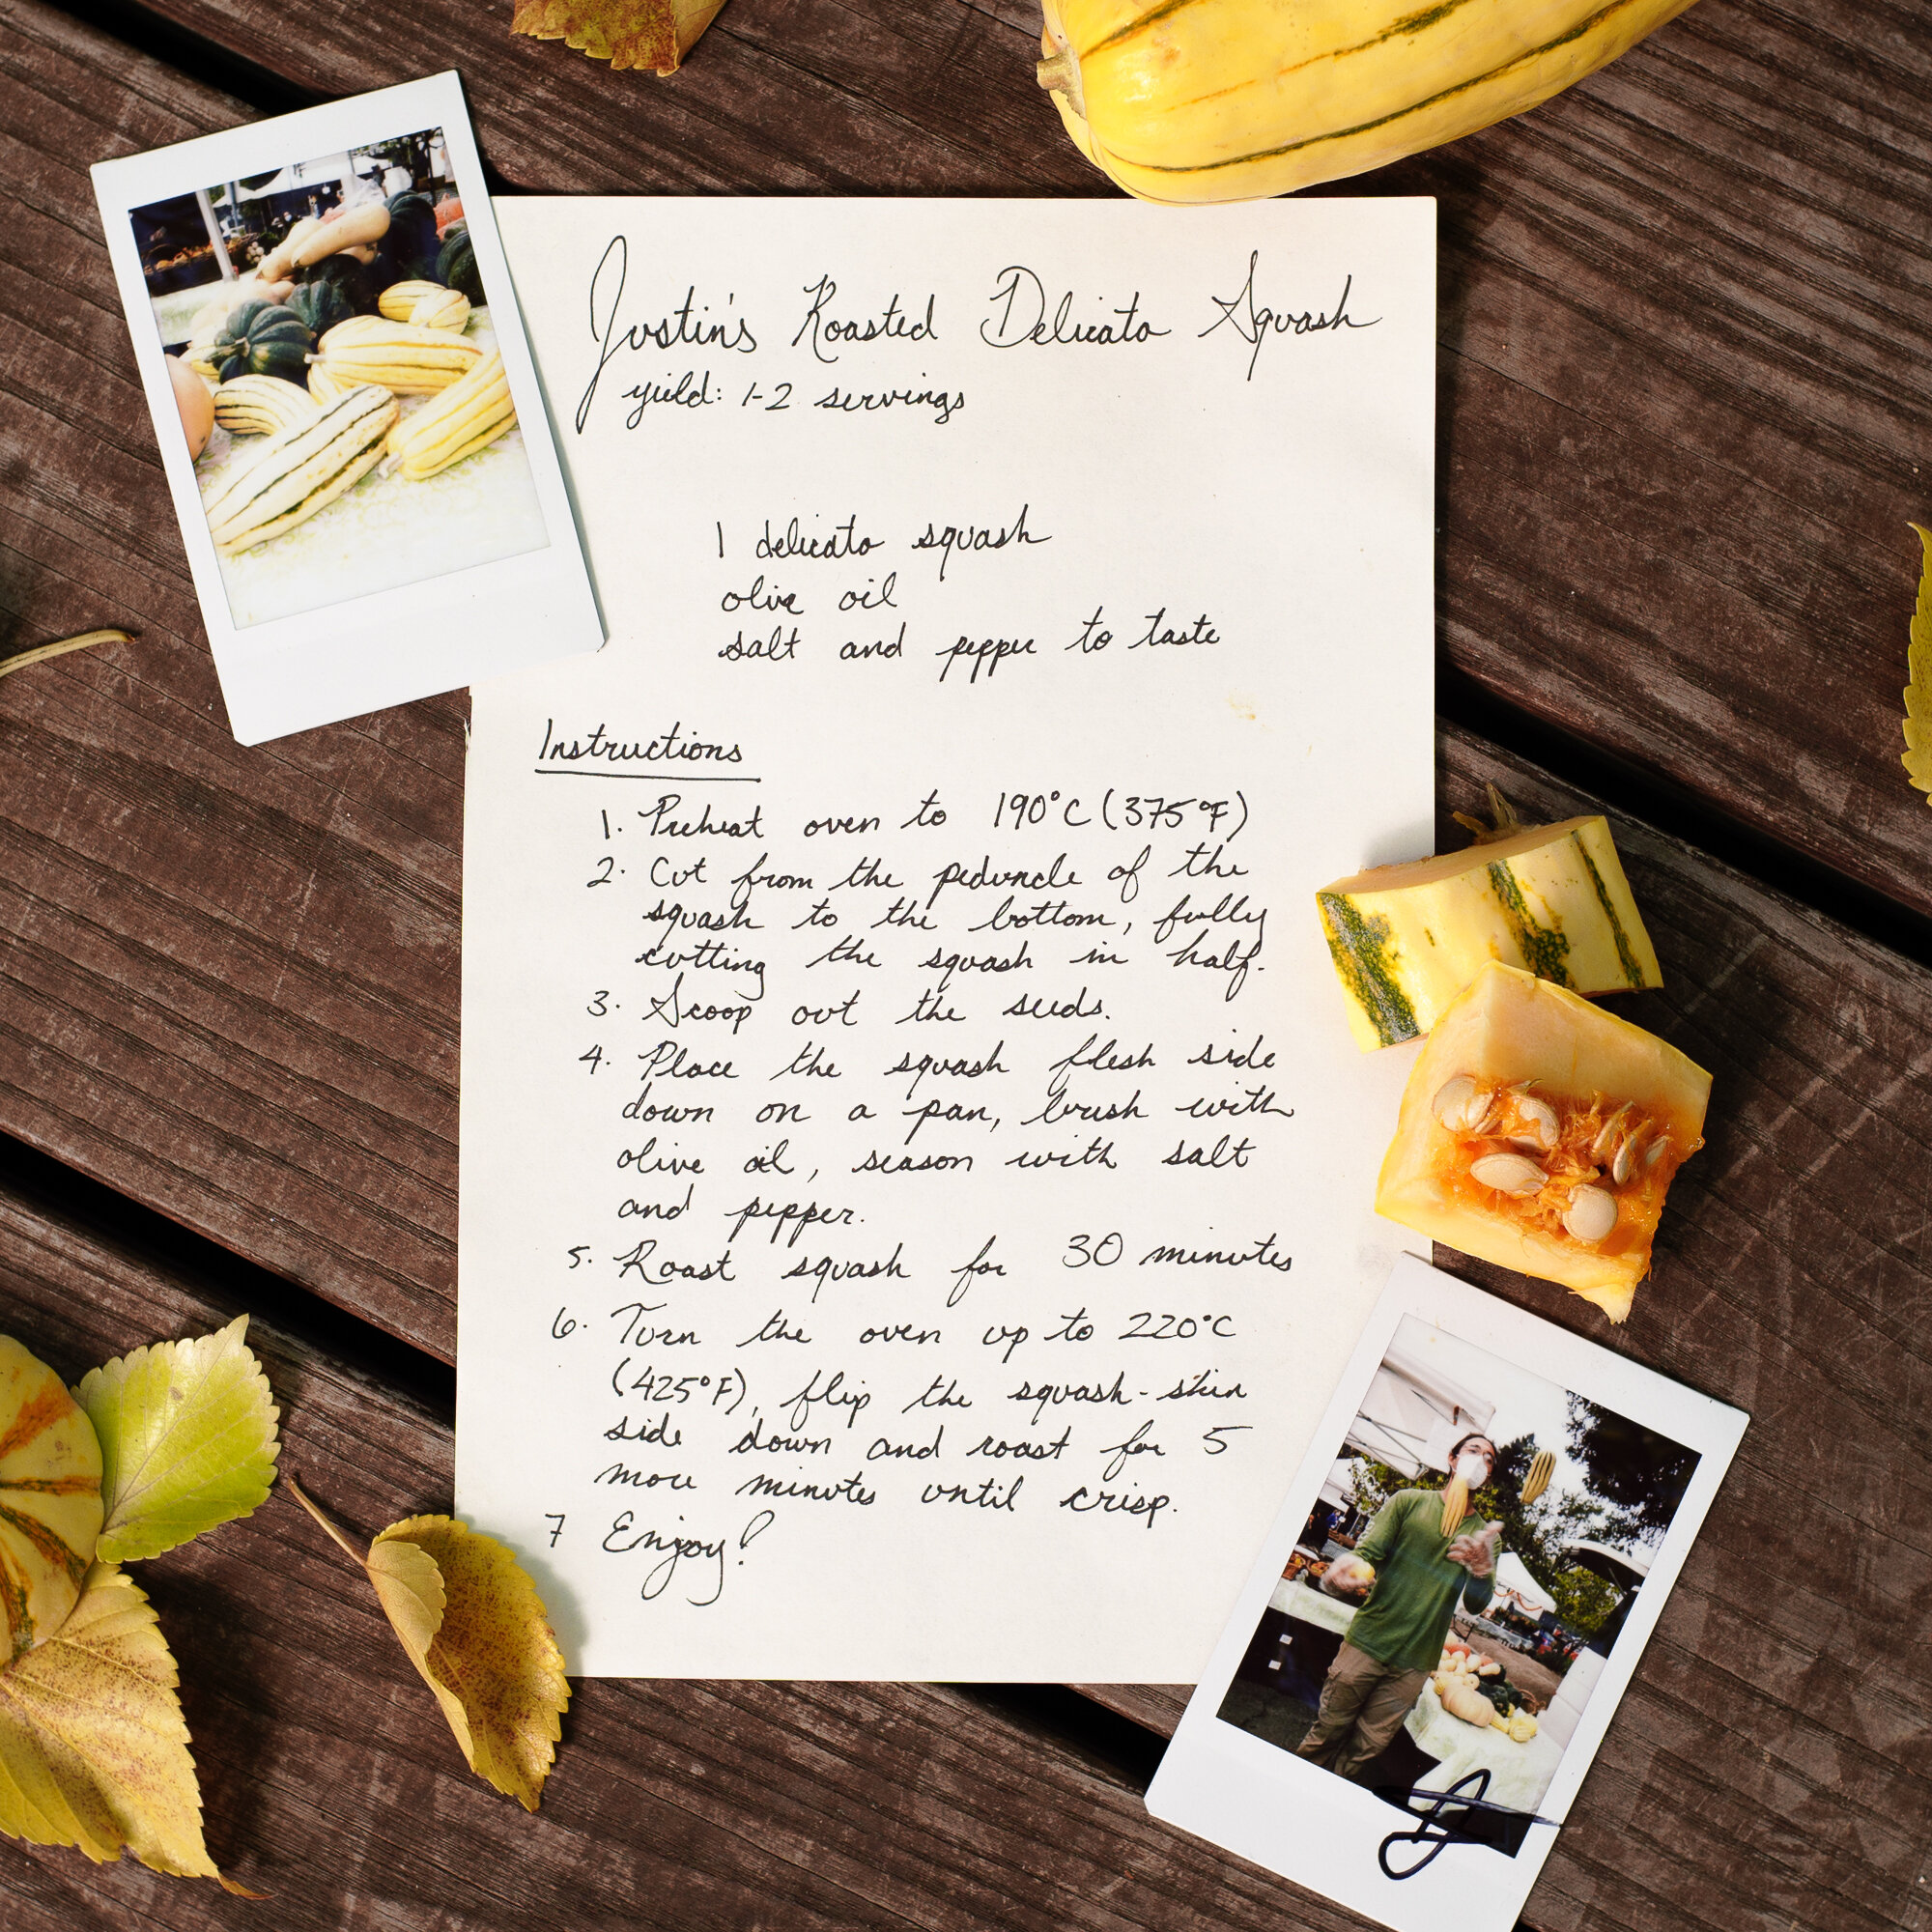 Justin's Roasted Delicata Squash
yield: 1-2 servings
1 delicata squash
olive oil
salt and pepper to taste
Instructions
1. Preheat oven to 190°C (375°F)
2. Cut from the peduncle of the
squash to the bottom, fully
cutting the squash in half.
3. Scoop out the seeds.
4. Place the squash flesh side
down on a pan, brush with
olive oil, season with salt
and pepper.
5. Roast squash for 30 minutes
6. Turn the oven up to 220°C
(425°F), flip the squash-skin
side down and roast for 5
more minutes until crisp.
7 Enjoy!